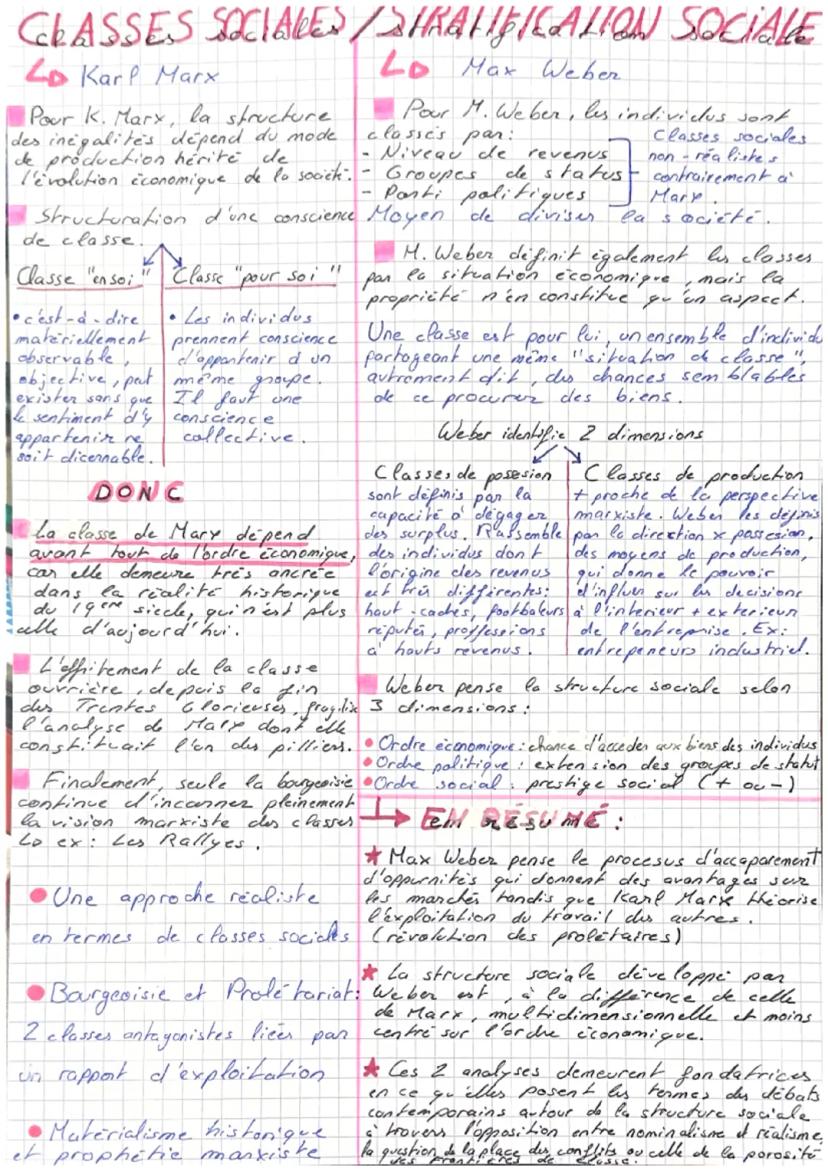 CLASSES SOCIALES / STRATIFICATION SOCIALE
↳ Karl Marx
Pour K. Marx, la structure
des inégalités dépend du mode
de production hérité de
l'évolution économique de la société.
Structuration d'une conscience
de classe.
Classe "en soi"
• c'est-à-dire
matériellement
observable,
objective, peut
exister sans que
le sentiment d'y
appartenir ne
soit dicernable.
Classe "pour soi"
• Les individus
prennent conscience
d'appartenir à un
même groupe.
Il faut une
conscience
collective.
DONC
La classe de Marx dépend
avant tout de l'ordre économique,
car elle demeure très ancrée
dans la réalité historique
du 19ème siecle, qui n'est plus
celle d'aujourd'hui.
L'effritement de la classe
ouvrière, depuis la fin
des Trentes Glorieuses, fragilix
l'analyse de Marx dont elle
constituait l'un des pilliers.
Finalement, seule la bourgeoisie
continue d'incarner pleinement
la vision marxiste des classes
↳ ex : Les Rallyes.
• Une approche réaliste
en termes de classes sociales
• Bourgeoisie et Prolétariat :
2 classes antagonistes liées par
un rapport d'exploitation
• Matérialisme historique
et prophétie marxiste
↳ Max Weber
Pour M. Weber, les individus sont
classés par :
- Niveau de revenus
- Groupes de status
- Parti politiques
Classes sociales
non-réalistes
contrairement à
Marx.
Moyen de diviser la société.
M. Weber définit également les classes
par la situation économique, mais la
propriété n'en constitue qu'un aspect.
Une classe est pour lui, un ensemble d'individu
partageant une même "situation de classe",
autrement dit, des chances semblables
de ce procurer des biens.
Weber identifie 2 dimensions
Classes de posesion
sont définis par la
capacité à dégager
des surplus. Rassemble
des individus dont
l'origine des revenus
est très différentes :
haut-cadres, footballeurs
réputés, proffessions
à hauts revenus.
Classes de production
+ proche de la perspective
marxiste. Weber les définis
par la direction x possesion,
des moyens de production,
qui donne le pouvoir
d'influer sur les decisions
à l'interieur + exterieur
de l'entreprise. Ex :
entrepeneurs industriel.
Weber pense la structure sociale selon
3 dimensions :
• Ordre économique : chance d'acceder aux biens des individus
• Ordre politique : extension des groupes de statut
• Ordre social : prestige social (+ ou -)
↳ EN RÉSUMÉ :
★ Max Weber pense le procesus d'accaparement
d'oppurnités qui donnent des avantages sur
les marchés tandis que Karl Marx théorise
l'exploitation du travail des autres.
(révolution des prolétaires)
★ La structure sociale développé par
Weber est, à la différence de celle
de Marx, multidimensionnelle et moins
centré sur l'ordre économique.
★ Ces 2 analyses demeurent fondatrices
en ce qu'elles posent les termes des débats
contemporains autour de la structure sociale
à travers l'opposition entre nominalisme et réalisme,
la question de la place des conflits ou celle de la porosité
des frontières de classe.